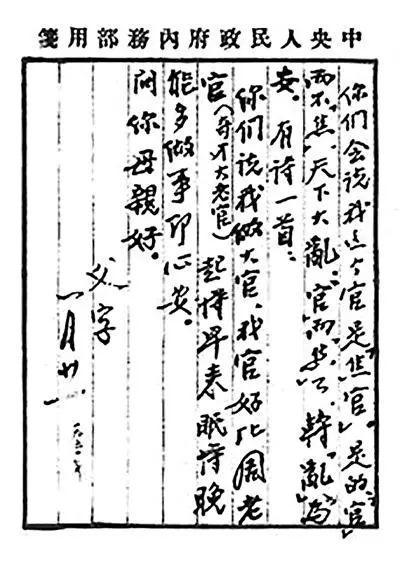 中央人民政府內務部用箋
你们会说我这个官是“焦官”。是的“官”
而不“焦”，天下大亂，“官”而“焦”了，轉“亂”为
安。有诗一首：
你们说我做大官，我官好比周老
官（奇才大老官）起得早来眠得晚
能多做事即心安。
问你母親好。
父字
一月廿一
一九五〇年